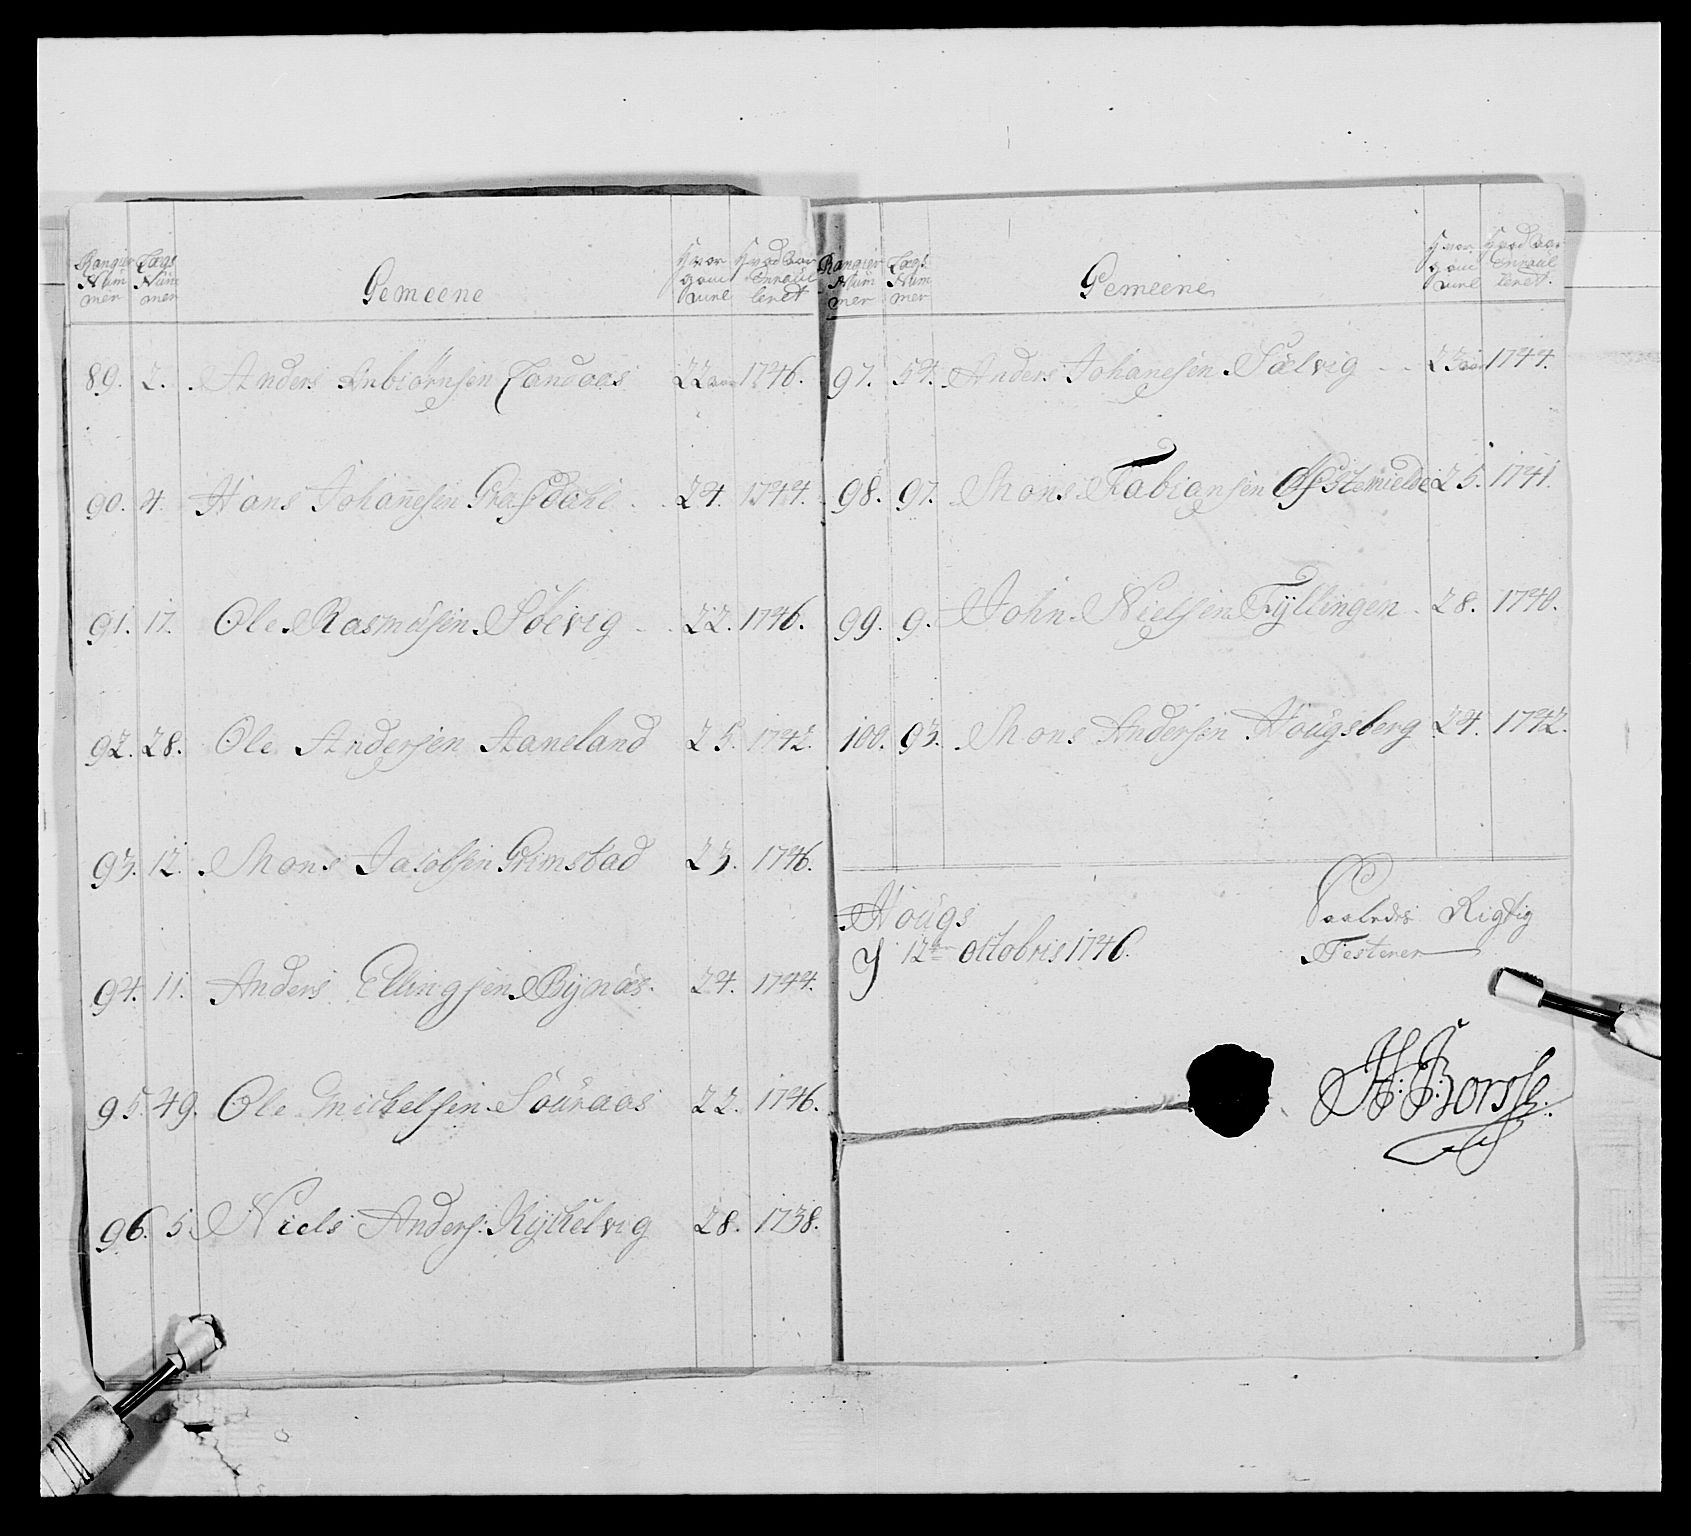 Rangier Nummer Lægs Nummer Gemeene Hvor gamel Hvad Aar Enroulleret
89. 2. Anders Anbiörnsen Landaas 22 aar 1746.
90. 4. Hans Johannesen Grafdahl 24. 1744.
91. 17. Ole Rasmusen Söevig 22. 1746.
92. 28. Ole Andersen Aaneland 25. 1742.
93. 12. Mons Jacobsen Grimstad 23. 1746.
94. 11. Anders Ellingsen Bynæs 24. 1744.
95. 49. Ole Mickelsen Souraas 22. 1746.
96. 5. Niels Anders: Kykelvig 28. 1738.
Rangier Nummer Lægs Nummer Gemeene Hvor gamel Hvad Aar Enroulleret.
97. 54. Anders Johanesen Sælvig 23 aar 1744.
98. 97. Mons Fabiansen 25. 1741.
99. 9. John Nielsen Fyllingen 28. 1740.
100. 93. Mons Andersen Hougsberg 24. 1742.
Hougs
12te Octobris 1746.
Saaledes Rigtig
Testerer
H: J: Borsse.